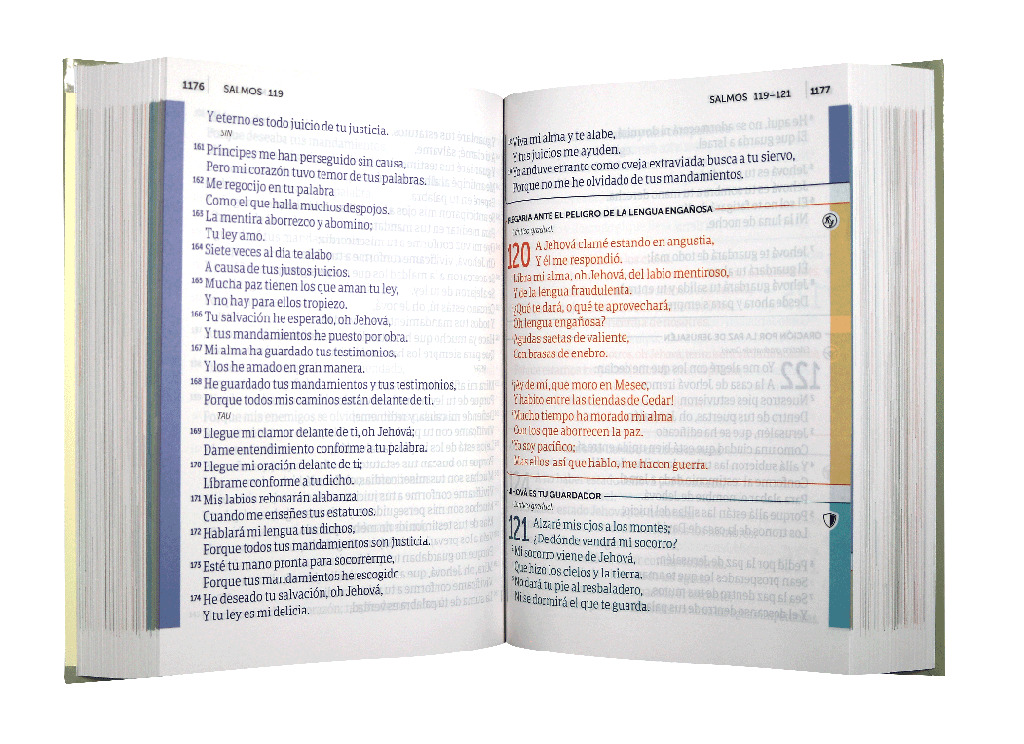 1176 SALMOS 119
Y eterno es todo juicio de tu justicia.
SIN
161 Príncipes me han perseguido sin causa,
Pero mi corazón tuvo temor de tus palabras.
162 Me regocijo en tu palabra
Como el que halla muchos despojos.
163 La mentira aborrezco y abomino;
Tu ley amo.
164 Siete veces al día te alabo
A causa de tus justos juicios.
165 Mucha paz tienen los que aman tu ley,
Y no hay para ellos tropiezo.
166 Tu salvación he esperado, oh Jehová,
Y tus mandamientos he puesto por obra.
167 Mi alma ha guardado tus testimonios,
Y los he amado en gran manera.
168 He guardado tus mandamientos y tus testimonios,
Porque todos mis caminos están delante de ti.
TAU
169 Llegue mi clamor delante de ti, oh Jehová;
Dame entendimiento conforme a tu palabra.
170 Llegue mi oración delante de ti;
Líbrame conforme a tu dicho.
171 Mis labios rebosarán alabanza
Cuando me enseñes tus estatutos.
172 Hablará mi lengua tus dichos,
Porque todos tus mandamientos son justicia.
173 Esté tu mano pronta para socorrerme,
Porque tus mandamientos he escogido
174 He deseado tu salvación, oh Jehová,
Y tu ley es mi delicia.
SALMOS 119-121 1177
Viva mi alma y te alabe,
Y tus juicios me ayuden.
Yo anduve errante como oveja extraviada; busca a tu siervo,
Porque no me he olvidado de tus mandamientos.
PLEGARIA ANTE EL PELIGRO DE LA LENGUA ENGAÑOSA
Cántico gradual.
120 A Jehová clamé estando en angustia,
Y él me respondió.
Libra mi alma, oh Jehová, del labio mentiroso,
Y de la lengua fraudulenta.
¿Qué te dará, o qué te aprovechará,
Oh lengua engañosa?
Agudas saetas de valiente,
Con brasas de enebro.
¡Ay de mí, que moro en Mesec,
Y habito entre las tiendas de Cedar!
Mucho tiempo ha morado mi alma
Con los que aborrecen la paz.
Yo soy pacífico;
Mas ellos, así que hablo, me hacen guerra.
JEHOVÁ ES TU GUARDADOR
Cántico gradual.
121 Alzaré mis ojos a los montes;
¿De dónde vendrá mi socorro?
Mi socorro viene de Jehová,
Que hizo los cielos y la tierra.
No dará tu pie al resbaladero,
Ni se dormirá el que te guarda.